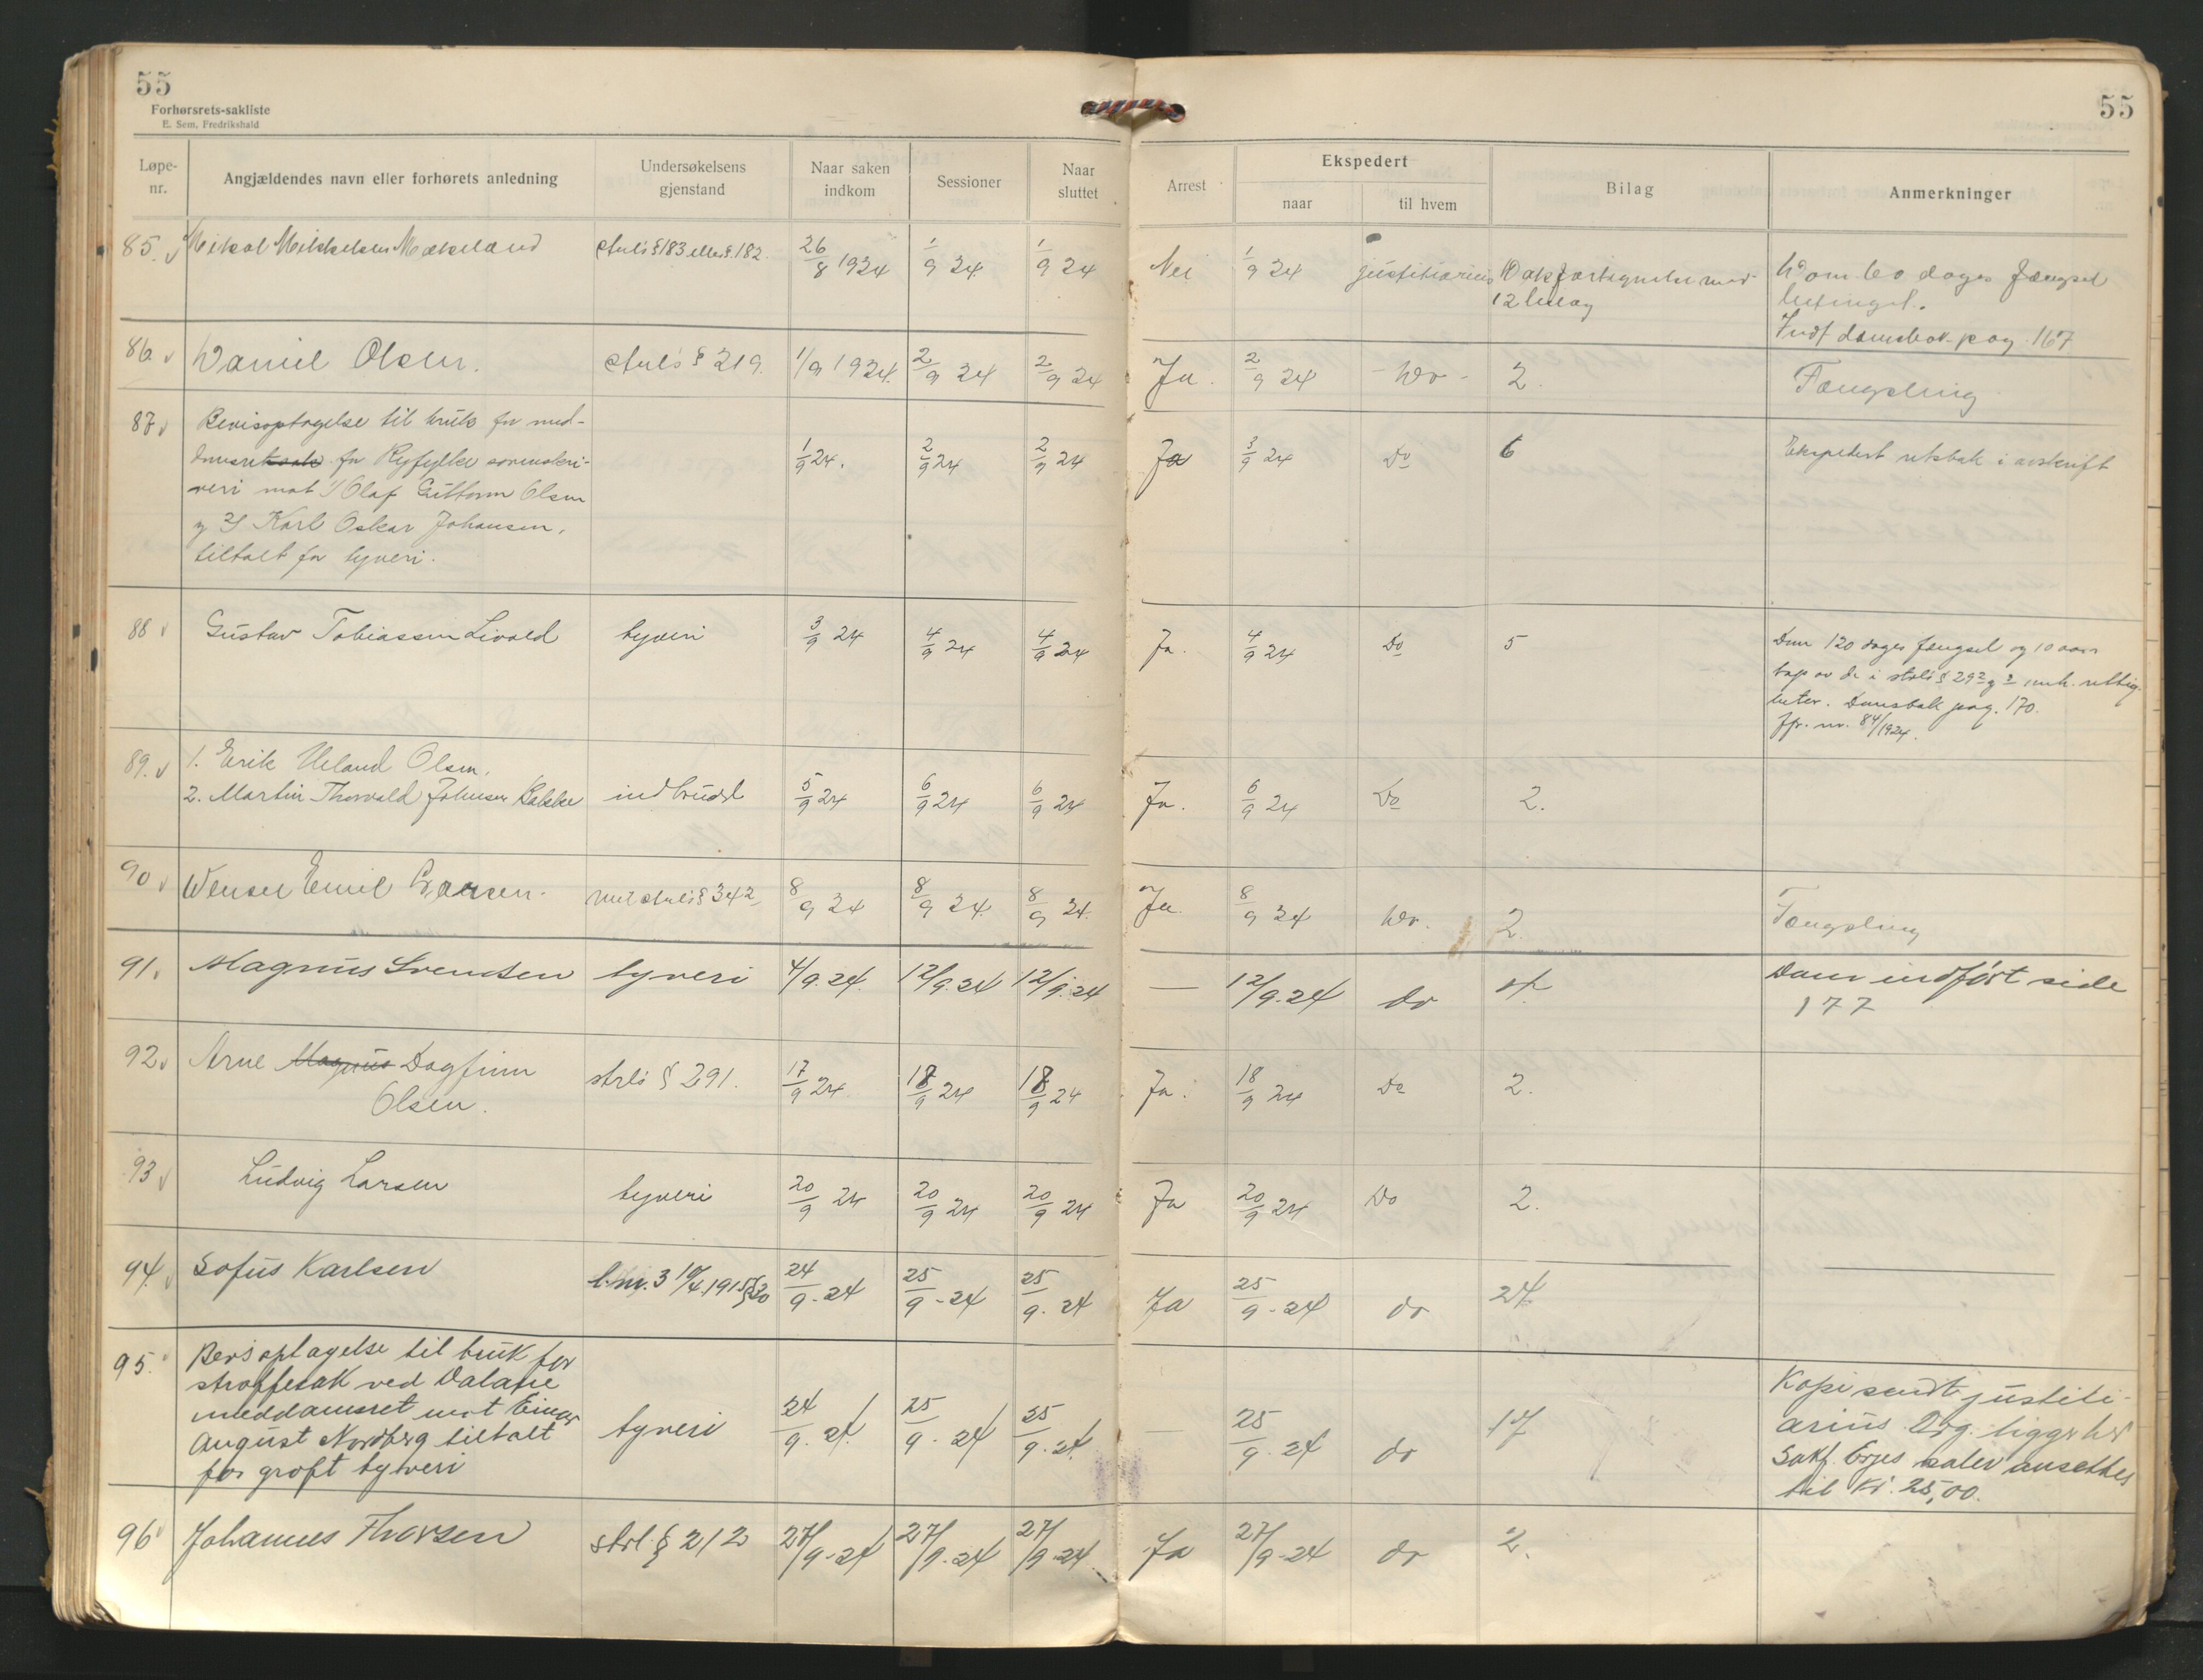 55
Forhørsrets-sakliste
E. Sem, Fredrikshald
55
Løpe-nr.
Angjældendes navn eller forhørets anledning
Undersøkelsens gjenstand
Naar saken indkom
Sessioner
Naar sluttet
Arrest
Ekspedert
naar
til hvem
Bilag
Anmerkninger
85. Mikal Mikkelsen 26/8 1924 1/9 24 1/9 24 Nei 1/9 24 justitiarius
12 bilag
Dom 60 dages fængsel
betinget.
Indf domsbok pag. 167
86. Daniel Olsen. strls § 219. 1/9 1924. 2/9 24 2/9 24 Ja. 2/9 24 - Do - 2. Fængsling
87. Bevisoptagelse til bruk for med-
domsret for Ryfylke sorenskri-
veri mot 1/ Olaf Guttorm Olsen
og 2/ Karl Oskar Johansen,
tiltalt for tyveri.
1/9 24. 2/9 24 2/9 24 Ja 3/9 24 Do 6 Ekspedert retsbok i avskrift
88 Gustav Tobiassen Livold tyveri 3/9 24 4/9 24 4/9 24 Ja. 4/9 24 Do 5
Dom 120 dages fengsel og 10 aars
tap av de i strls § 29 2 og 3 rettig-
heter. Domsbok pag. 170.
Jfr. nr. 84/1924.
89. 1. Erik Ueland Olsen.
2. Martin Thorvald Johnsen Bakke indbrudd 5/9 24 6/9 24 6/9 24 Ja. 6/9 24 Do 2.
90 Emil § 342 8/9 24 8/9 24. 8/9 24. Ja. 8/9 24 Do. 2. Fængsling
91. Magnus Svendsen tyveri 4/9.24. 12/9.24 12/9.24 — 12/9.24 do Dom indført side
177
92. Arne Magnus Dagfinn
Olsen. strls § 291. 17/9 24. 18/9 24 18/9 24 Ja. 18/9 24 Do 2.
93 Ludvig Larsen tyveri 20/9 24 20/9 24 20/9 24 Ja 20/9 24 Do 2.
94. Sofus Karlsen l. nr. 3 1915 24/9-24 25/9-24 25/9.24 Ja 25/9-24 do 24.
95. Bevisoptagelse til bruk for
straffesak ved Dalane
meddomsret mot Einar
August Nordberg tiltalt
for groft tyveri
tyveri 24/9.24. 25/9.24 25/9.24. — 25/9.24 do 17
Kopi sendt justiti-
arius. Org. ligger her
Sakf. salær ansettes
til Kr. 25,00.
96 Johannes Thorsen strl. § 212 27/9-24 27/9.24 27/9.24. Ja 27/9-24 do 2.